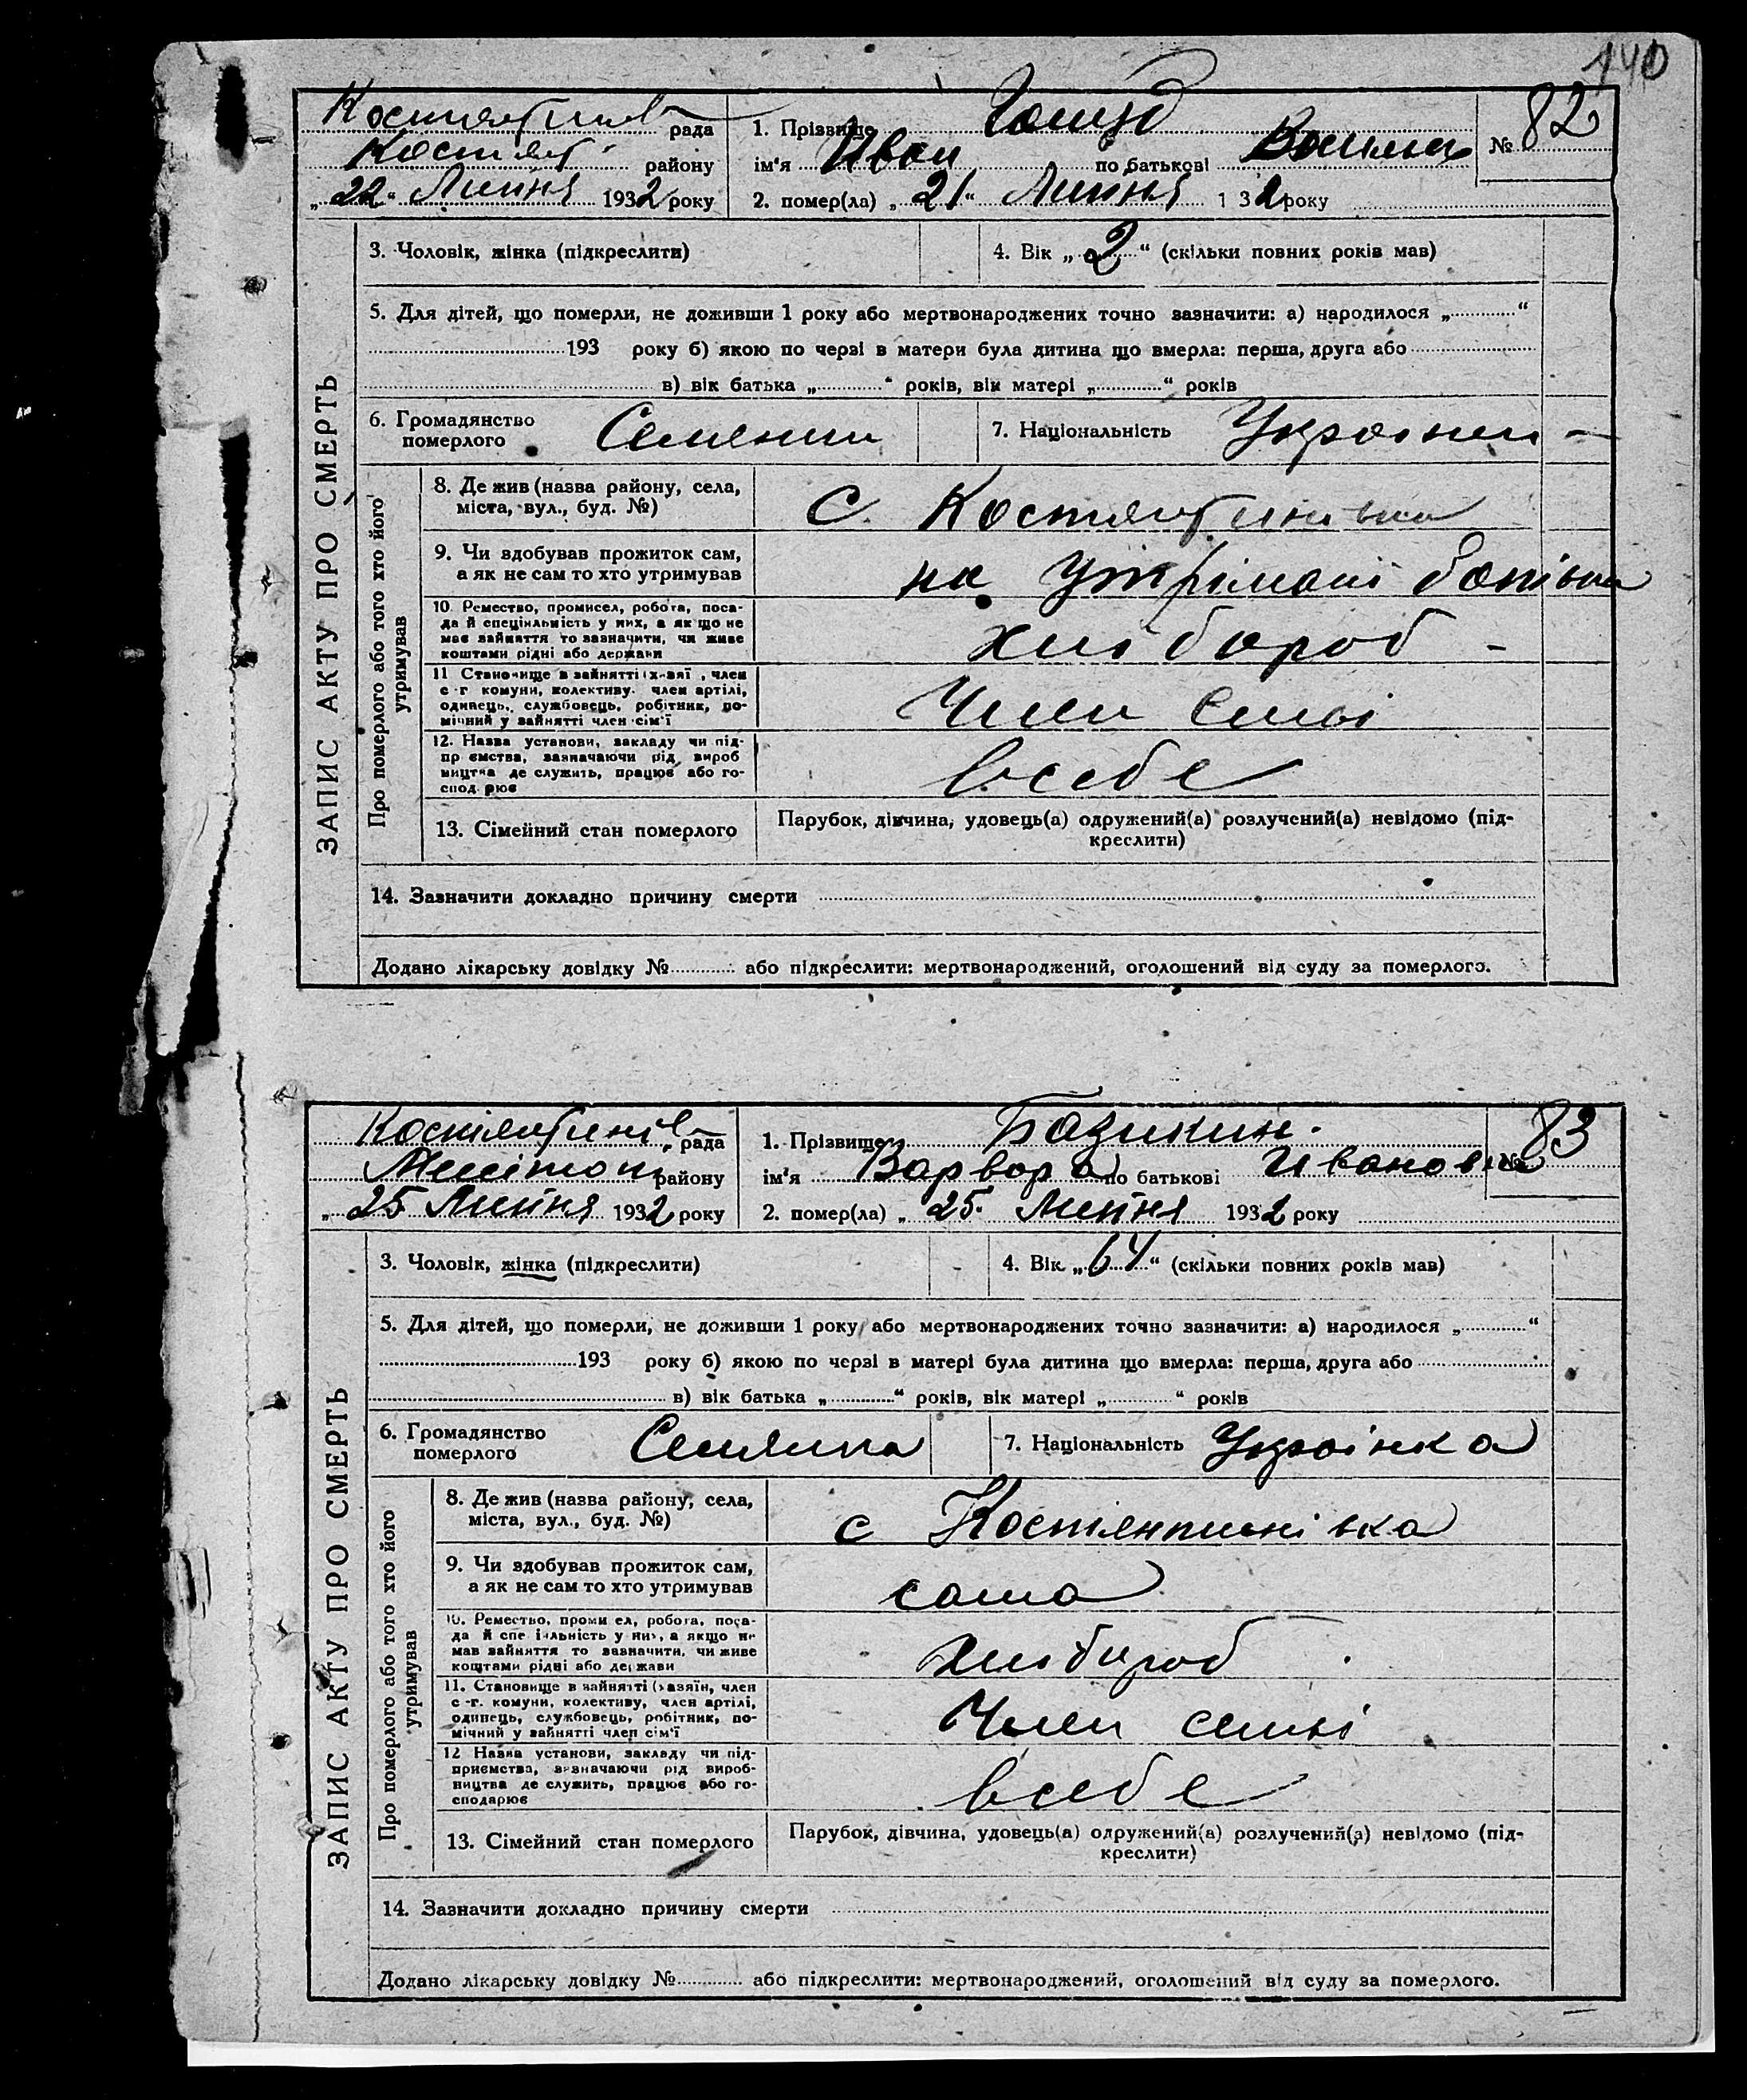 140
рада 1. Прізвище №82
Костянт. району ім'я Иван по батькові
„22" Липня 1932 року 2. помер(ла) „21" Липня 1 32 року
ЗАПИС АКТУ ПРО СМЕРТЬ
3. Чоловік, жінка (підкреслити) 4. Вік „2" (скільки повних років мав)
5. Для дітей, що померли, не доживши 1 року або мертвонароджених точно зазначити: а) народилося „ "
193 року б) якою по черзі в матери була дитина що вмерла: перша, друга або
в) вік батька „ " років, вік матері „ " років
6. Громадянство Селянин 7. Національність
померлого
Про померлого або того хто його
утримував
8. Де жив (назва району, села,
міста, вул., буд. №) с. Костянтинівка
9. Чи здобував прожиток сам,
а як не сам то хто утримував на утрімані батівка
10. Ремество, промисел, робота, поса-
да й спеціяльність у них, а як що не
має зайняття то зазначити, чи живе
коштами рідні або держави хлібороб -
11 Становище в зайнятті (х-зяї , член
с-г комуни, колективу. член артілі,
одинець, службовець, робітник, по-
мічний у зайнятті член сім'ї Член семьі
12. Назва установи, закладу чи під-
пр ємства, зазначаючи рід вироб
ництва де служить, працює або го-
спод рює всебе
13. Сімейний стан померлого Парубок, дівчина, удовець(а) одружений(а) розлучений(а) невідомо (під-
креслити)
14. Зазначити докладно причину смерти
Додано лікарську довідку № або підкреслити: мертвонароджений, оголошений від суду за померлого.
Костянтинів. рада 1. Прізвище Базилин. №83
Мелітоп району ім'я Варвара по батькові Ивановна
„25 Липня 1932 року 2. помер(ла) „25. Липня 1932 року
ЗАПИС АКТУ ПРО СМЕРТЬ
3. Чоловік, жінка (підкреслити) 4. Вік „64" (скільки повних років мав)
5. Для дітей, що померли, не доживши 1 року або мертвонароджених точно зазначити: а) народилося „ "
193 року б) якою по черзі в матері була дитина що вмерла: перша, друга або
в) вік батька „ " років, вік матері „ " років
6. Громадянство Селянка 7. Національність Українка
померлого
Про померлого або того хто його
утримував
8. Де жив (назва району, села,
міста, вул., буд. №) с Костянтинівка
9. Чи здобував прожиток сам,
а як не сам то хто утримував сама
10. Ремество, проми ел, робота, поса-
да й спе іяльність у них, а якщо не
мав зайняття то зазначити, чи живе
коштами рідні або держави хлібороб
11. Становище в зайнятті (хазяїн, член
с-г. комуни, колективу, член артілі,
одинець, службовець, робітник, по-
мічний у зайнятті член сім'ї Член семьі
12 Назва установи, закладу чи під-
приємства, зазначаючи рід вироб-
ництва де служить, працює або го-
сподарює всебе
13. Сімейний стан померлого Парубок, дівчина, удовець(а) одружений(а) розлучений(а) невідомо (під-
креслити)
14. Зазначити докладно причину смерти
Додано лікарську довідку № або підкреслити: мертвонароджений, оголошений від суду за померлого.